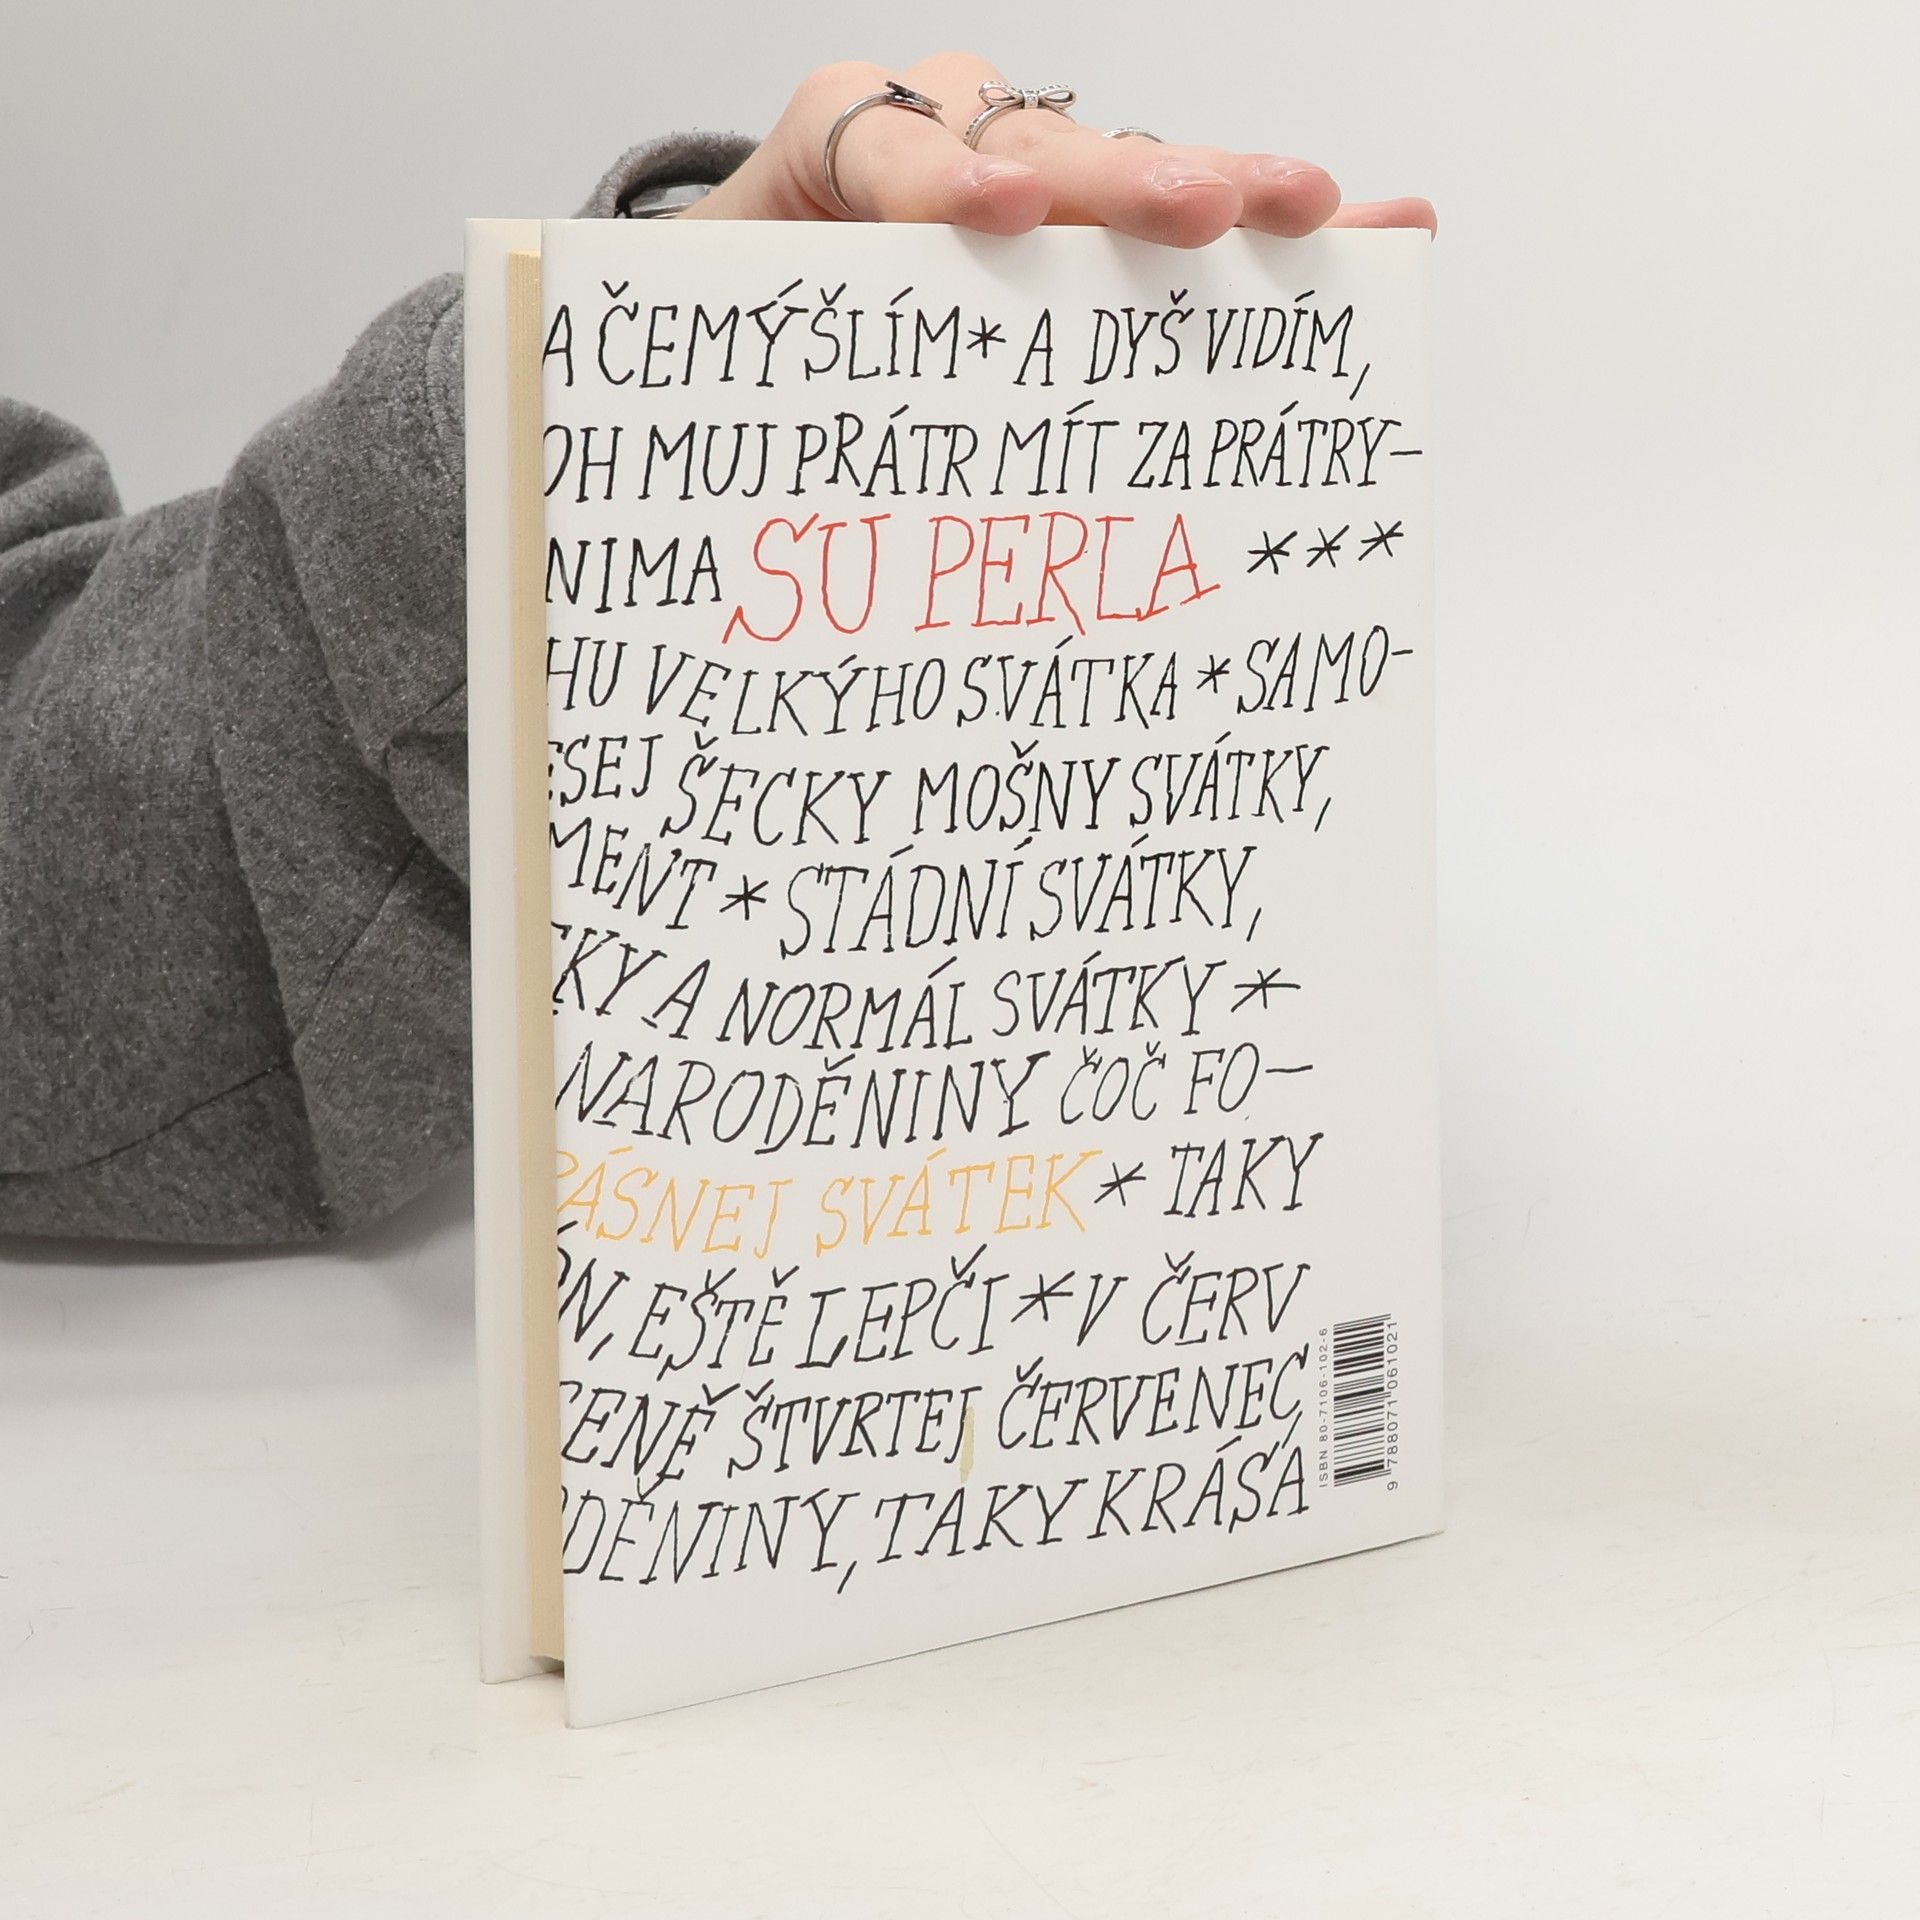 A ČEMÝŠLÍM * A DYŠ VIDÍM,
OH MUJ PRÁTR MÍT ZA PRÁTRY-
NIMA SU PERLA ***
HU VELKÝHO SVÁTKA * SAMO-
ESEJ ŠECKY MOŠNY SVÁTKY,
MENT * STÁDNÍ SVÁTKY,
KY A NORMÁL SVÁTKY *
NARODĚNINY ČOČ FO-
ÁSNEJ SVÁTEK * TAKY
N, EŠTĚ LEPČI * V ČERV
CENĚ ŠTVRTEJ ČERVENEC,
DĚNINY, TAKY KRÁSÁ
ISBN 80-7106-102-6
9 788071 061021